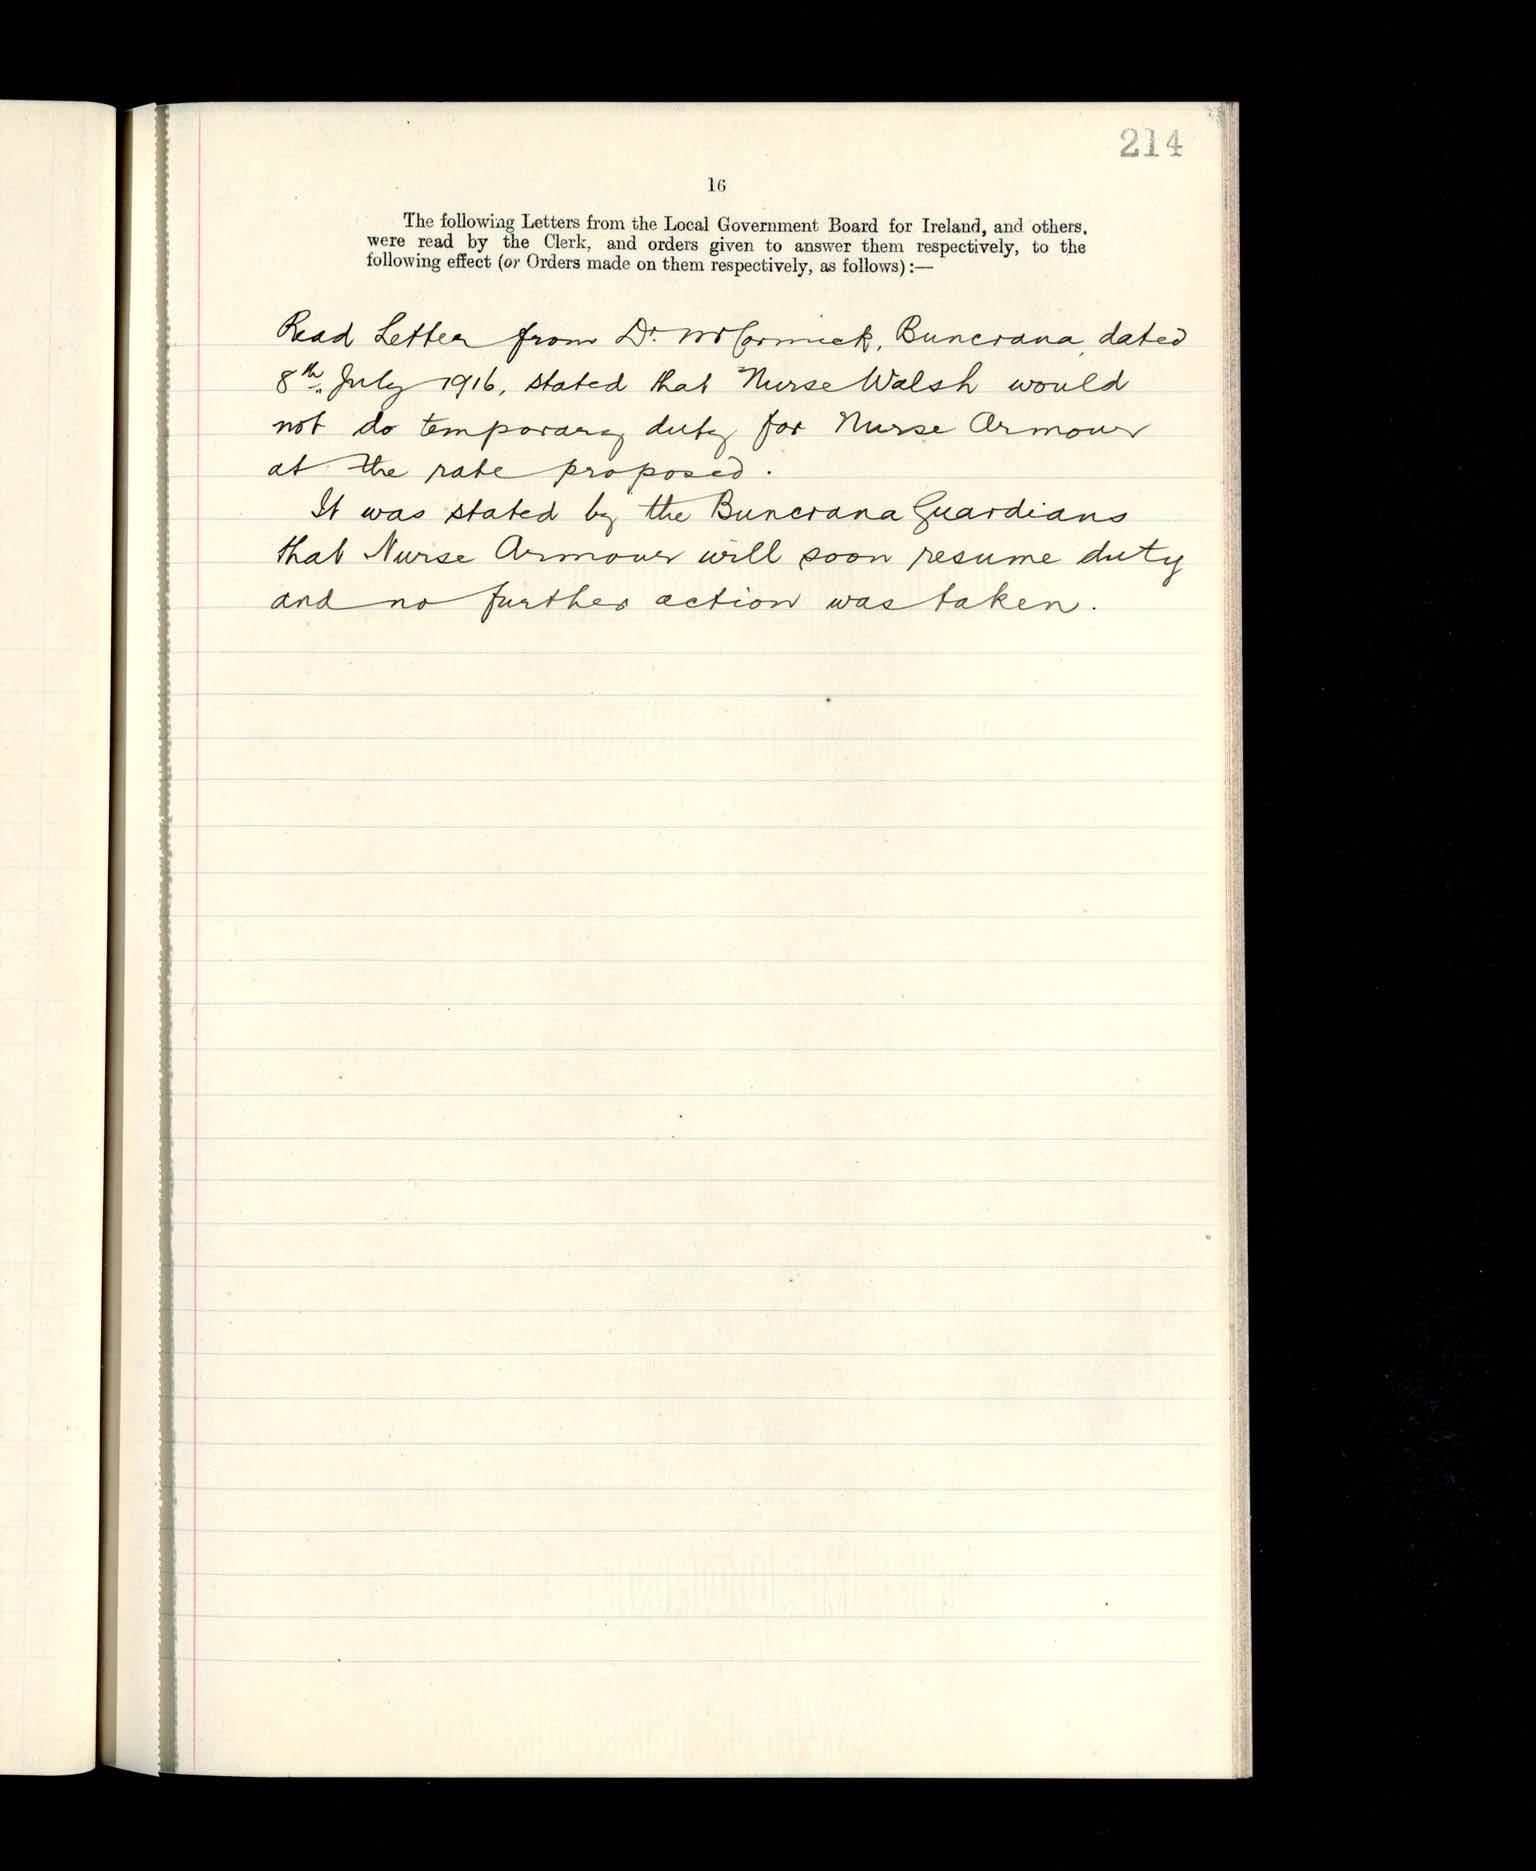 214
16
The following Letters from the Local Government Board for Ireland, and others,
were read by the Clerk, and orders given to answer them respectively, to the
following effect (or Orders made on them respectively, as follows):—
Read Letter from Dr. McCormick, Buncrana, dated
8th July 1916, stated that Nurse Walsh would
not do temporary duty for Nurse Armour
at the rate proposed.
It was stated by the Buncrana Guardians
that Nurse Armour will soon resume duty
and no further action was taken.